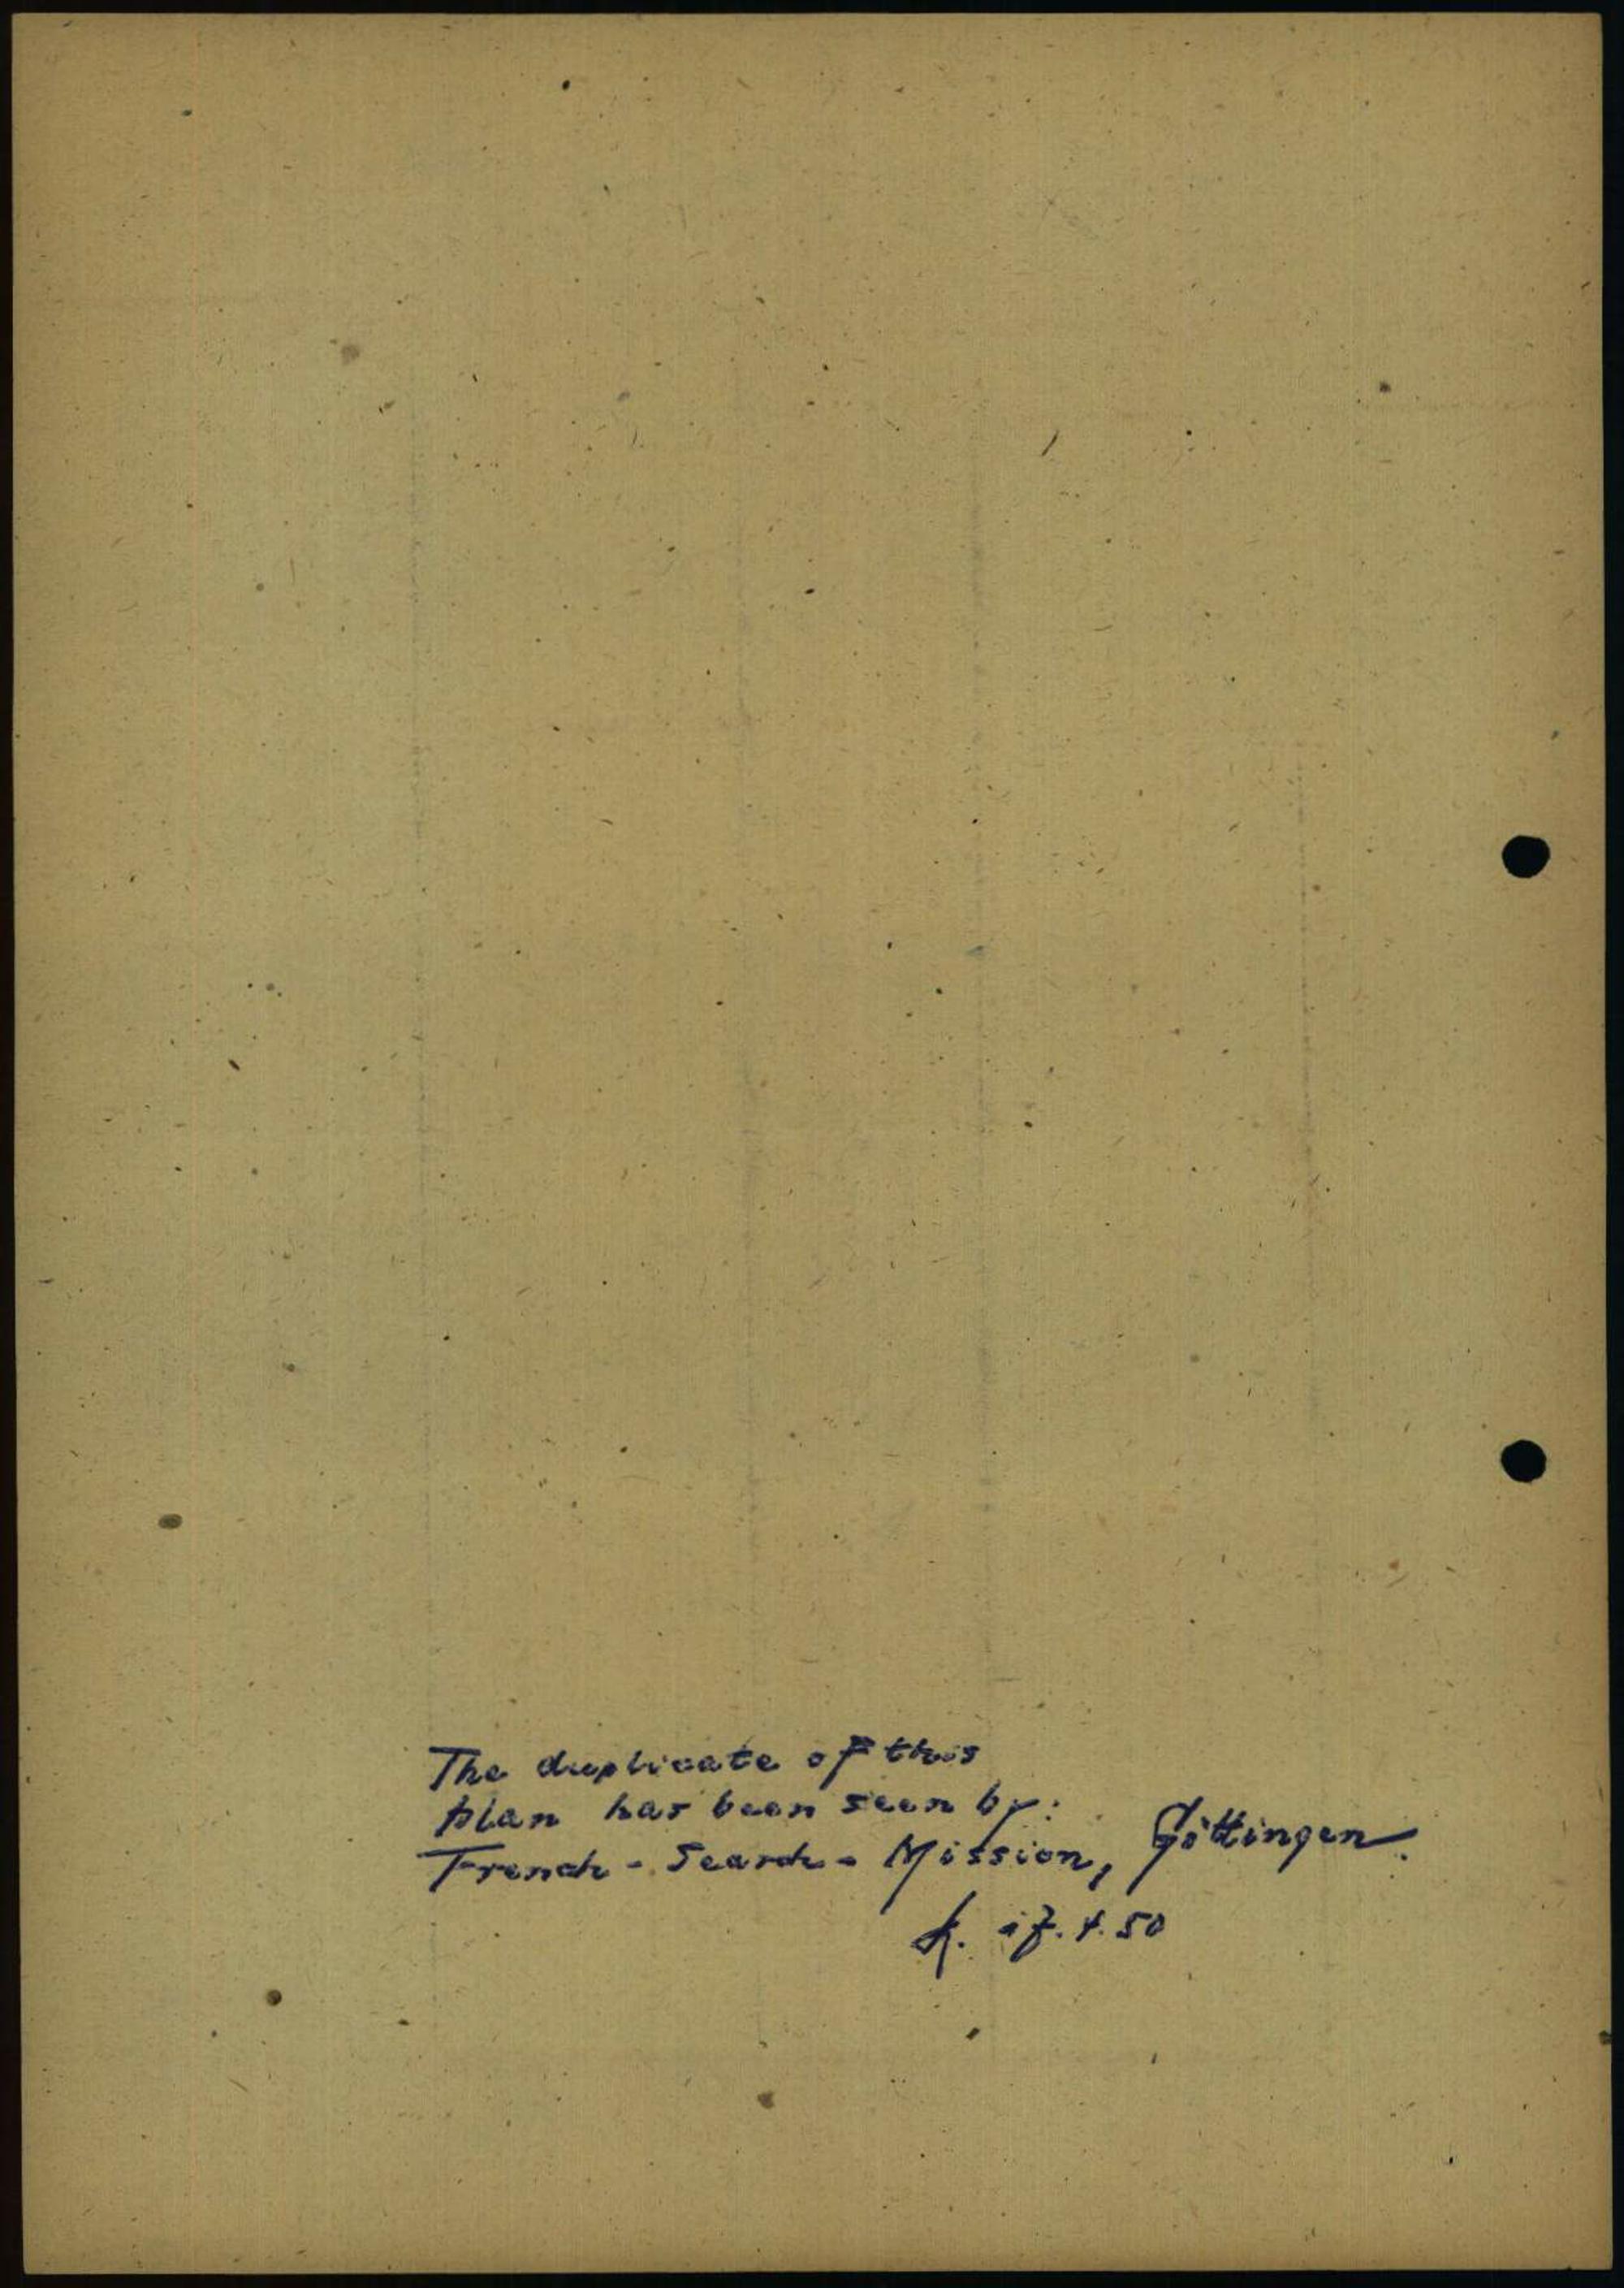 The duplicate of this
plan has been seen by:
French - Search - Mission, Göttingen.
K. 17.4.50